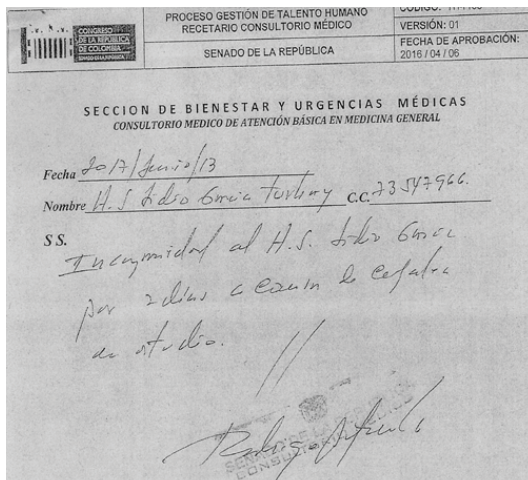 CONGRESO
DE LA REPÚBLICA
DE COLOMBIA
PROCESO GESTIÓN DE TALENTO HUMANO
RECETARIO CONSULTORIO MÉDICO
SENADO DE LA REPÚBLICA
VERSIÓN: 01
FECHA DE APROBACIÓN:
2016 / 04 / 06
SECCION DE BIENESTAR Y URGENCIAS MÉDICAS
CONSULTORIO MEDICO DE ATENCIÓN BÁSICA EN MEDICINA GENERAL
Fecha 2017/Junio/13
Nombre H.S Lidio Garcia Turbay C.C. 73547966.
S S.
Incapacidad al H.S. Lidio Garcia
por 2 dias a causa de cefalea
de estudio.
SENADO DE LA REPÚBLICA
CONSULTORIO MEDICO